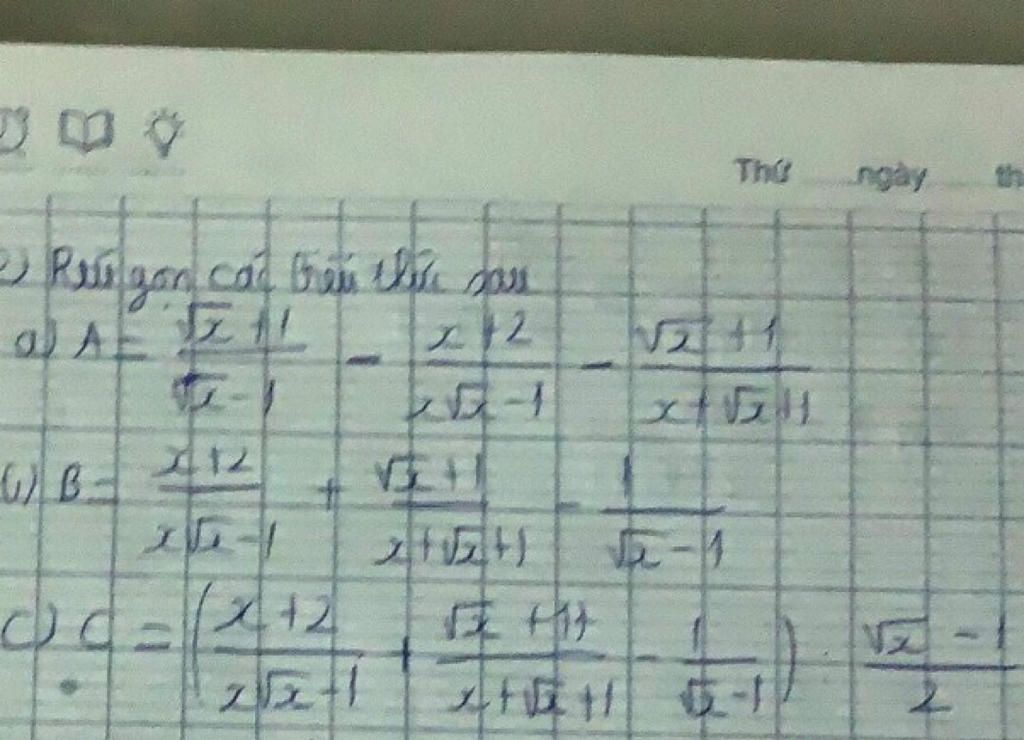 Thứ ngày th
2) Rút gọn các biểu thức sau
a) A = (√x + 1)/(√x - 1) - (x + 2)/(x√x - 1) - (√x + 1)/(x + √x + 1)
b) B = (x + 2)/(x√x - 1) + (√x + 1)/(x + √x + 1) - 1/(√x - 1)
c) C = ((x + 2)/(x√x - 1) + (√x + 1)/(x + √x + 1) - 1/(√x - 1)) . (√x - 1)/2